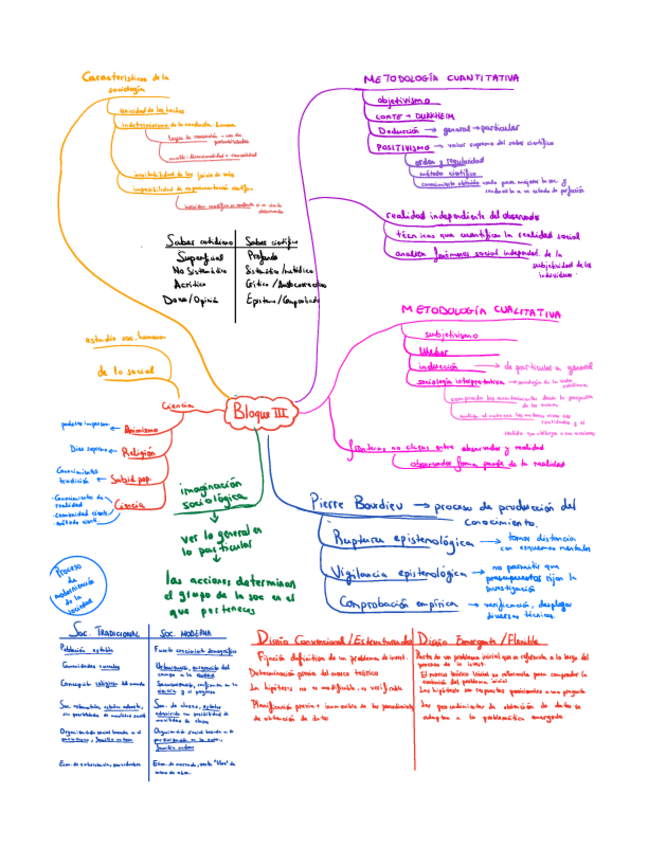 Características de la
sociología
unicidad de los hechos
indeterminismo de la conducta humana
probabilidades
multi-direccionalidad x causalidad
inevitabilidad de los juicios de valor
imposibilidad de experimentación científica
METODOLOGÍA CUANTITATIVA
objetivismo
COMTE + DURKHEIM
Deducción → general → particular
POSITIVISMO → valor supremo del saber científico
orden y regularidad
método científico
conocimiento obtenido usado para mejorar la soc y
conducirla a un estado de perfección
realidad independiente del observador
técnicas que cuantifican la realidad social
analizan fenómenos social independ. de la
subjetividad de los
individuos.
Saber cotidiano Saber científico
Superficial Profundo
No Sistemático Sistemático/metódico
Acrítico Crítico/Autocorrectivo
Doxa/Opinión Episteme/Comprobado
METODOLOGÍA CUALITATIVA
subjetivismo
Weber
inducción → de particular a general
sociología interpretativa → sociología de la vida
cotidiana
fronteras no claras entre observador y realidad
observador forma parte de la realidad
estudio soc. humana
de lo social
Ciencia
Bloque III
Animismo
Dios supremo ← Religión
Conocimiento
tradición ← Sabid. pop.
Ciencia
· Conocimiento de
realidad
· método cientí.
imaginación
sociológica
↓
ver lo general en
lo particular
↓
las acciones determinan
el grupo de la soc en el
que perteneces
Pierre Bourdieu → proceso de producción del
conocimiento.
Ruptura epistemológica → tomar distancia
con esquemas mentales
Vigilancia epistemológica → no permitir que
presupuestos rijan la
investigación
Comprobación empírica → verificación, desplegar
diversas técnicas.
Proceso
de
modernización
de la
sociedad
SOC. TRADICIONAL SOC. MODERNA
Población estable Fuerte crecimiento demográfico
Comunidades rurales Urbanización, migración del
campo a la ciudad
Concepción religiosa del mundo Secularización, confianza en la
ciencia y el progreso
Soc. estamentales, estatus adscrito, Soc. de clases, estatus
sin posibilidades de movilidad social adquirido con posibilidad de
movilidad de clases
Organización social basada en el Organización social basada en la
Diseño Convencional/Estructurado Diseño Emergente/Flexible
Fijación definitiva de un problema de invest. Parte de un problema inicial que es reformulado a lo largo del
proceso de la invest.
Determinación previa del marco teórico El marco teórico inicial se reformula para comprender la
evolución del problema inicial
La hipótesis no es modificable, es verificable Las hipótesis son respuestas provisionales a una pregunta
Planificación previa e inamovible de los procedimientos Los procedimientos de obtención de datos se
de obtención de datos adaptan a la problemática emergente